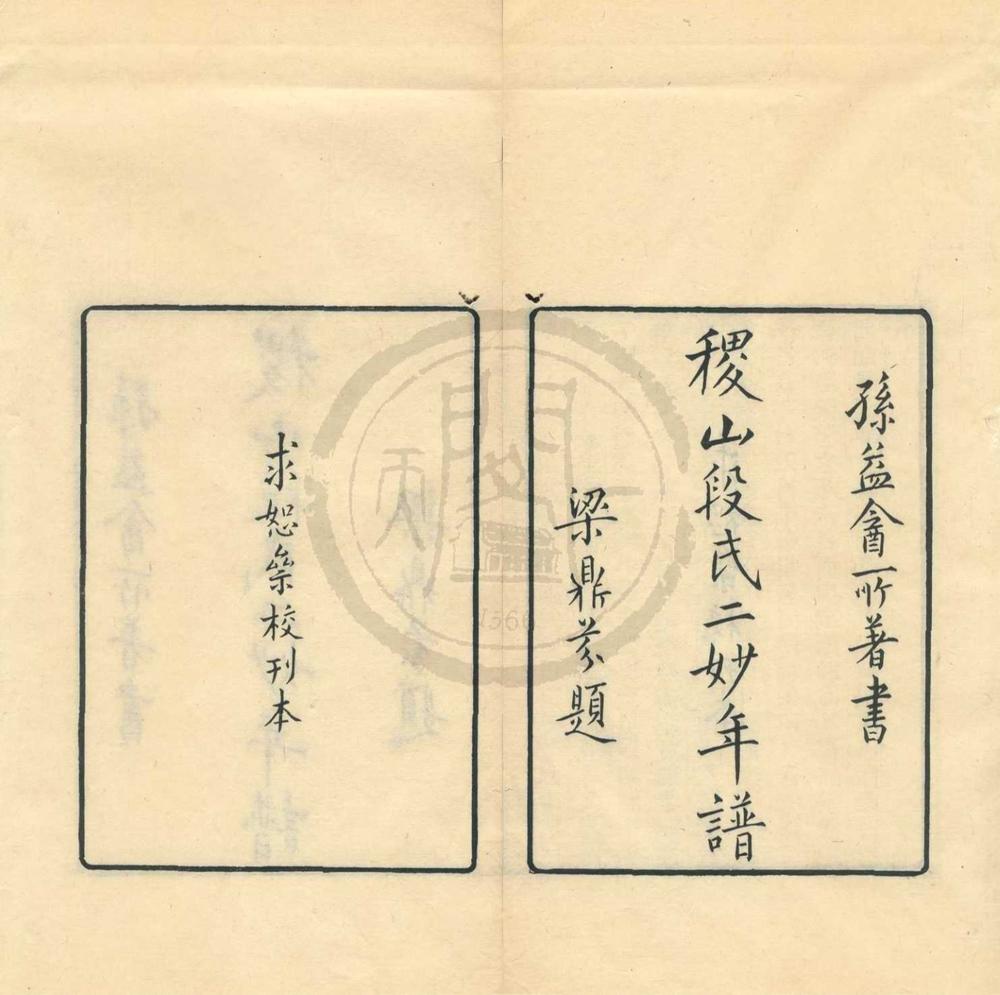 孫益龕所著書
稷山段氏二妙年譜
梁鼎芬題
求恕㮤校刊本
1566